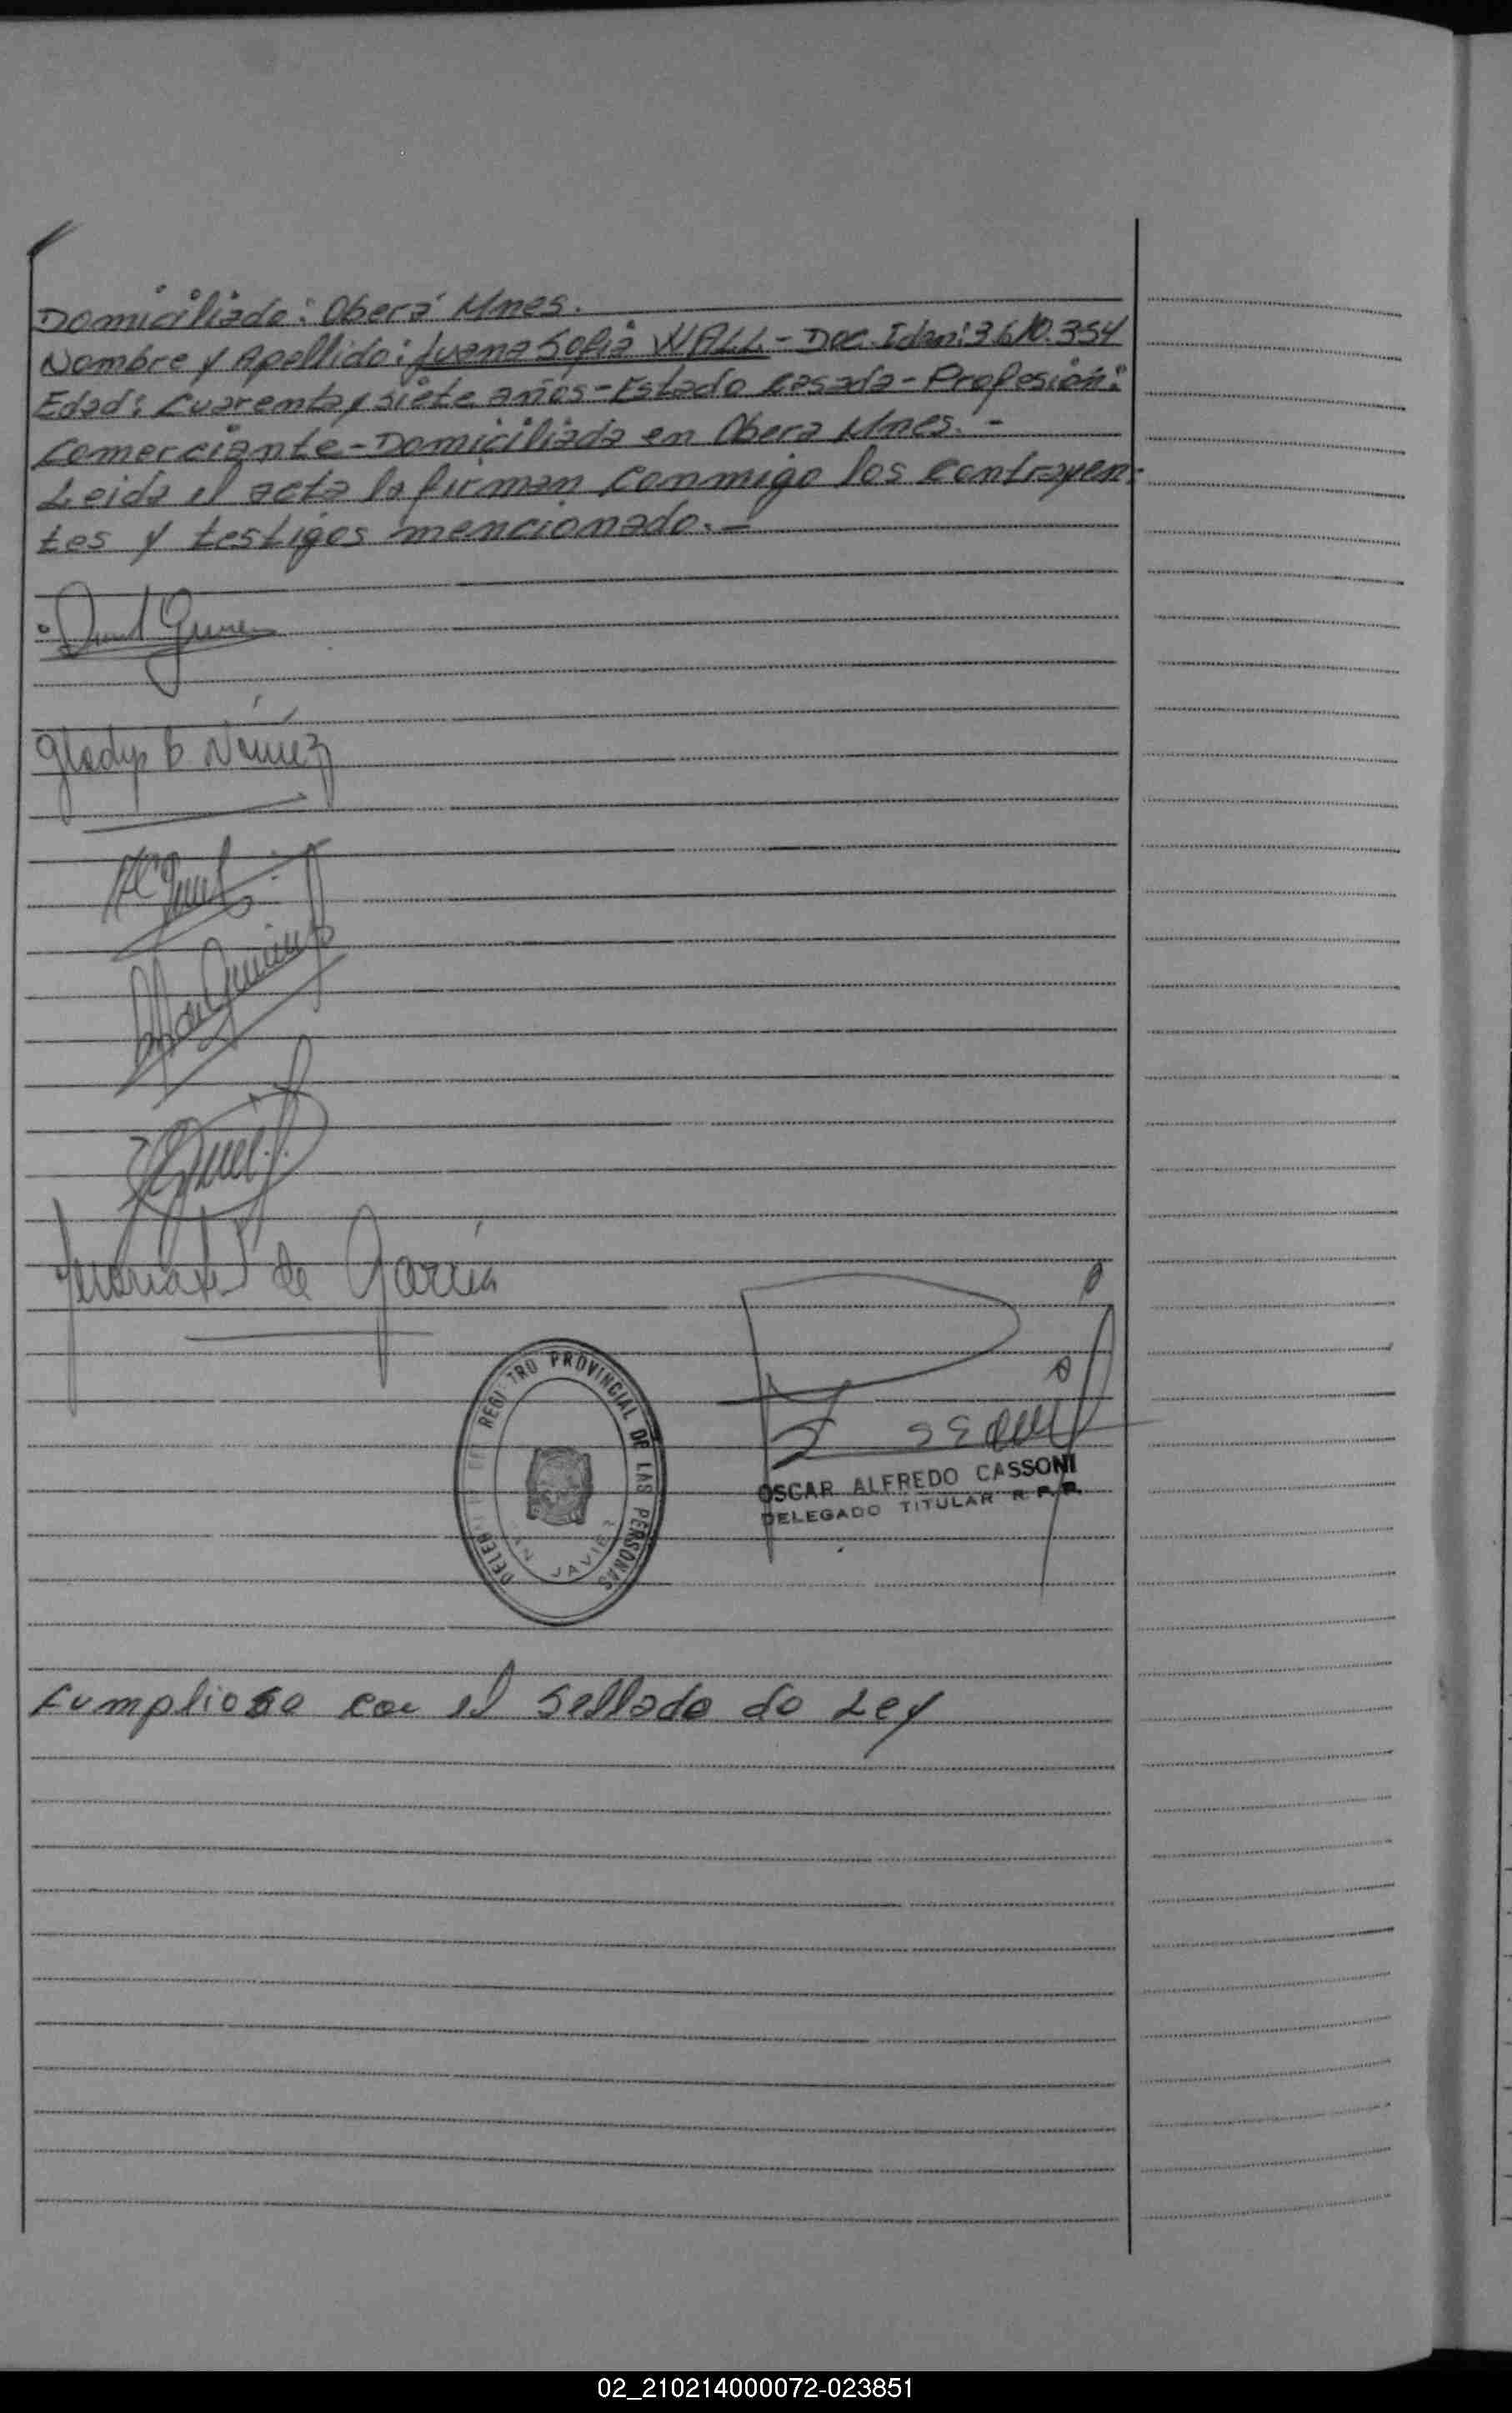 Domiciliado: Oberá Mnes.
Nombre y Apellido: Juana Sofia WALL - Doc. Iden: 3.610.354
Edad: Cuarenta y siete años - Estado casada - Profesión:
Comerciante - Domiciliada en Obera Mnes. -
Leida el acta la firman conmigo los contrayen-
tes y testigos mencionado. -
Gladys B Núñez
de García
REGISTRO PROVINCIAL DE LAS PERSONAS
SAN JAVIER
OSCAR ALFREDO CASSONI
DELEGADO TITULAR R. P. P.
Cumpliose con el sellado de Ley
02_210214000072-023851